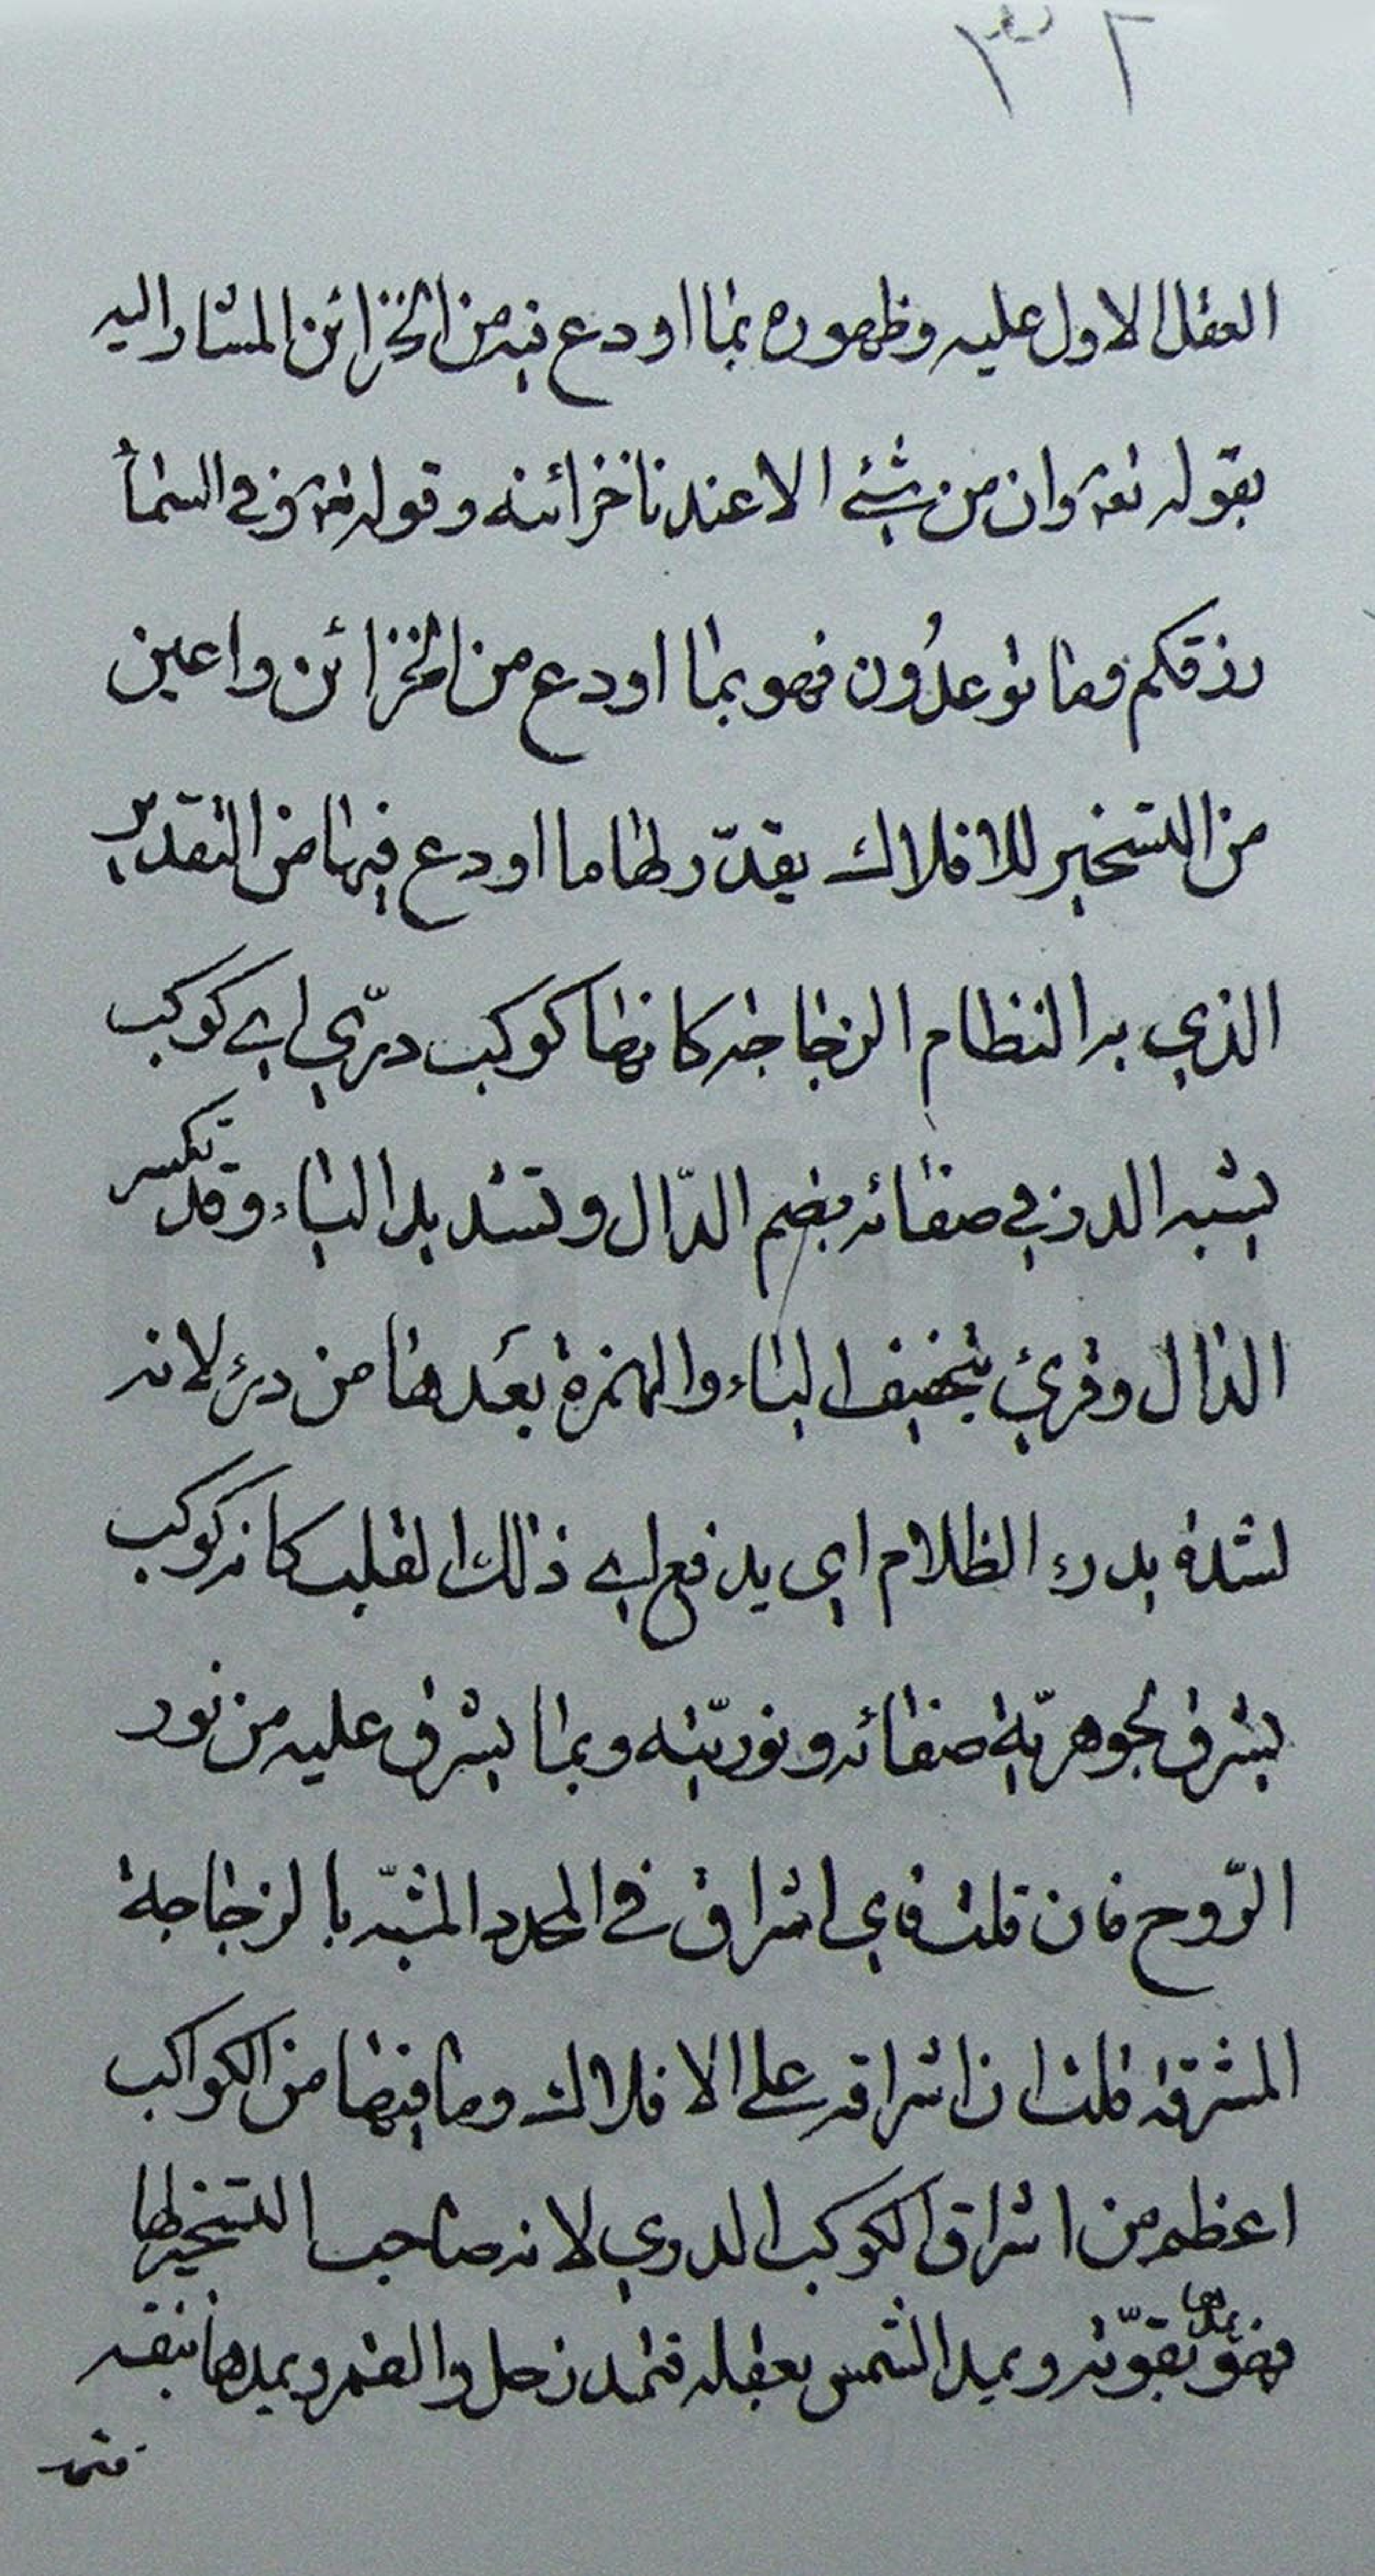 ٣٢
العقل الاول عليه وظهوره بما اودع فيه من الخزائن المشار اليه
بقوله تعا وان من شئ الا عندنا خزائنه وقوله تعا وفي السماء
رزقكم وما توعدُون فهو بما اودع من الخزائن واعين
من التسخير للافلاك يقدّر لها ما اودع فيها من التقدير
الذي به النظام الزجاجه كانها كوكب درّي اي كوكب
يشبه الدر في صفائه بضم الدّال وتشديد الياء وقد تكسر
الدال وقرئ بتخفيف الياء والهمزة بعدها من درء لانه
لشدة يدرء الظلام اي يدفع اي ذلك القلب كانه كوكب
يشرق لجوهريّة صفائه ونوريّته وبما يشرق عليه من نور
الرّوح فان قلت فاي اشراق في المحدد المشبّه بالزجاجة
المشرقة قلت ان اشراقه على الافلاك وما فيها من الكواكب
اعظم من اشراق الكوكب الدري لانه صاحب التسخير لها
فهو يمدها بقوّته ويمد الشمس بعقله فتمد زحل والقمر ويمدها بنفسه
فتمد